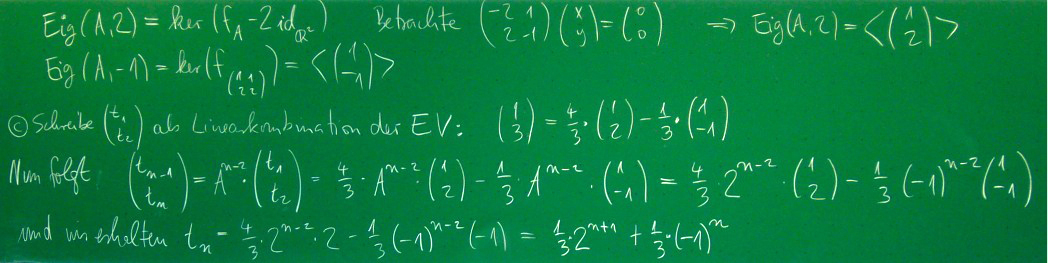 Eig(A,2) = ker(f_A - 2 id_ℝ²) Betrachte (-2 1; 2 -1)(x; y) = (0; 0) ⟹ Eig(A,2) = <(1; 2)>
Eig(A,-1) = ker(f_(1 1; 2 2)) = <(1; -1)>
ⓒ Schreibe (t_1; t_2) als Linearkombination der EV: (1; 3) = 4/3 · (1; 2) - 1/3 · (1; -1)
Nun folgt (t_{n-1}; t_n) = A^{n-2} · (t_1; t_2) = 4/3 · A^{n-2} · (1; 2) - 1/3 A^{n-2} · (1; -1) = 4/3 2^{n-2} · (1; 2) - 1/3 (-1)^{n-2} (1; -1)
und wir erhalten t_n = 4/3 · 2^{n-2} · 2 - 1/3 (-1)^{n-2} (-1) = 1/3 · 2^{n+1} + 1/3 · (-1)^n